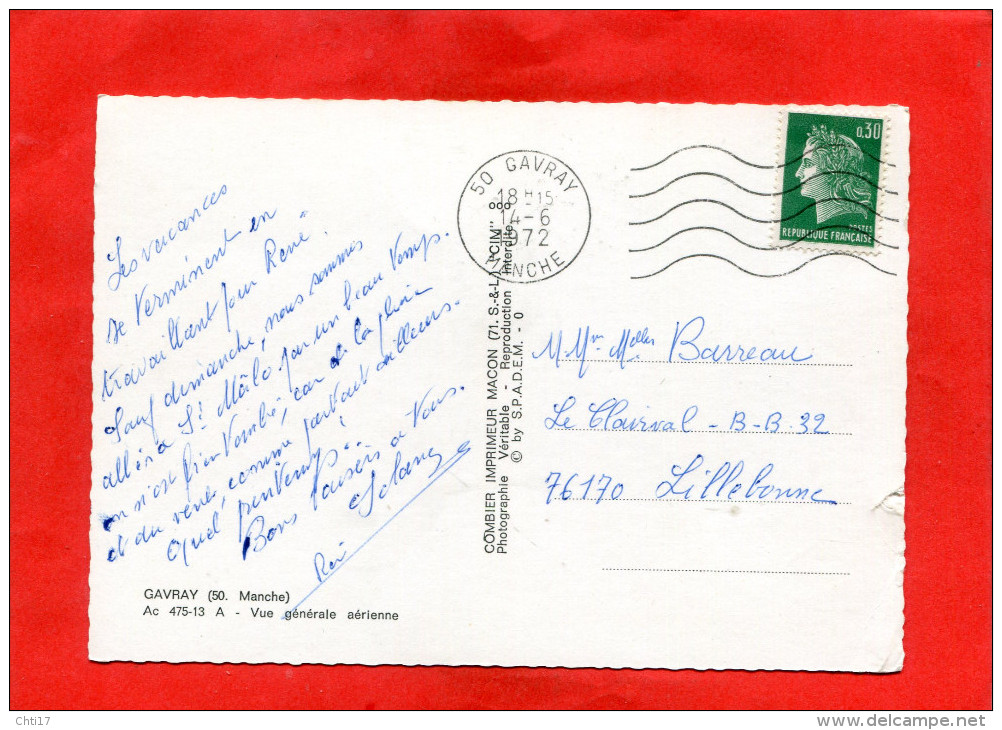 Les vacances
se terminent en
travaillant pour René
Sauf dimanche, nous sommes
allés à St Mâlo par un beau temps.
on s'est bien car de la pluie
et du vent, comme partout ailleurs.
Quel printemps!
Bons baisers à Vous.
Solange
René
GAVRAY (50. Manche)
Ac 475-13 A - Vue générale aérienne
COMBIER IMPRIMEUR MACON (71. S.-&-L.) "CIM"
Photographie Véritable - Reproduction Interdite
© by S.P.A.D.E.M. - 0
50 GAVRAY
18 H15
14-6
1972
MANCHE
0,30
POSTES
REPUBLIQUE FRANÇAISE
M. Mme Melles Barreau
Le Clairval - B-B. 32
76170 Lillebonne
Chti17
www.delcampe.net